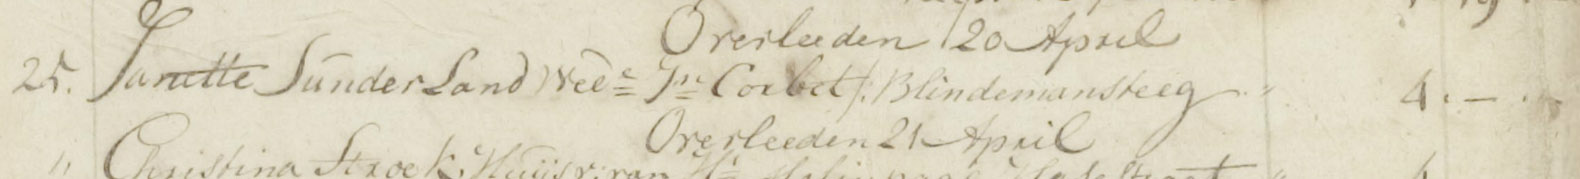 Overleeden 20 April
25. Janette Sunderland Wede Jn Corbet /: Blindemansteeg " 4.—.
Overleeden 21 April
" Christina Stroek, Huijsv: van Hk